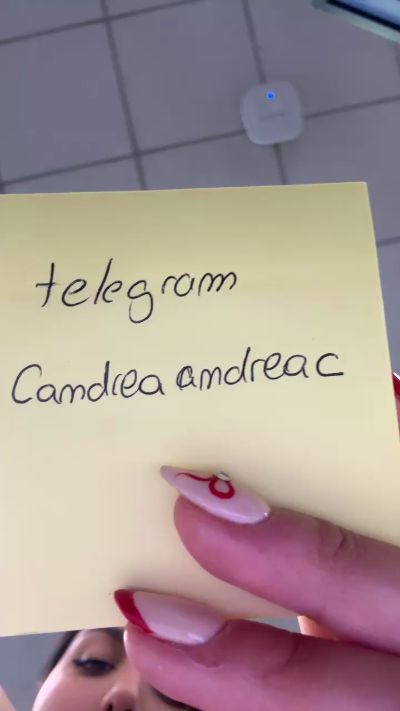 telegram
Camdrea amdrea c